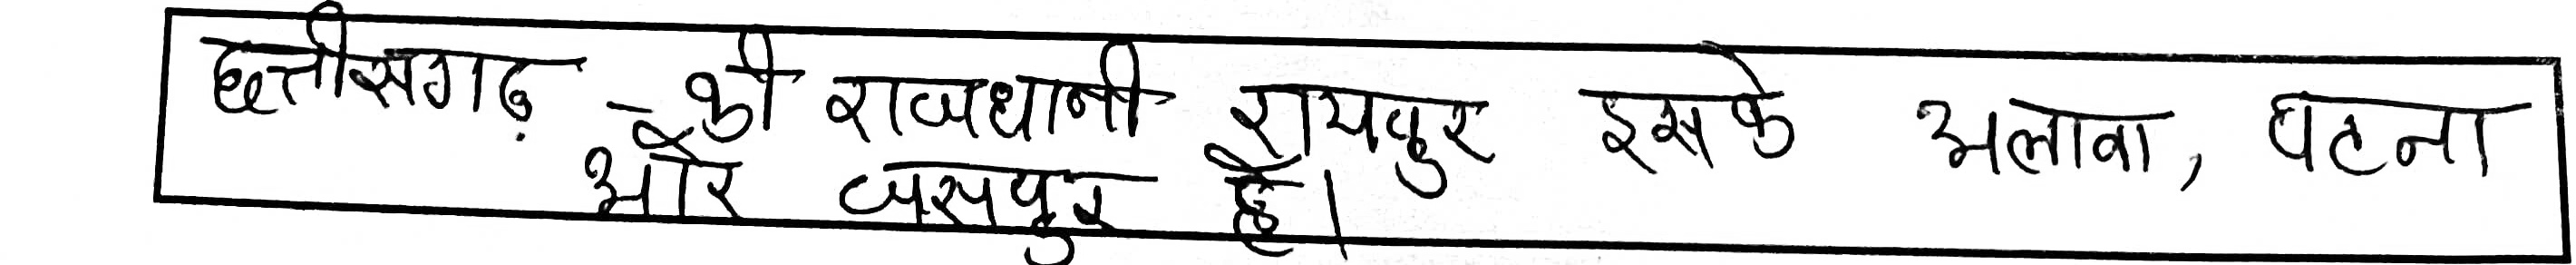 छत्तीसगढ़ - की राजधानी रायपुर इसके अलावा, पटना
और जसपुर है।